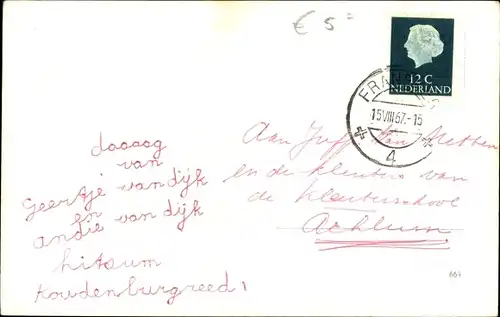 € 5 =
12 C
NEDERLAND
15 VIII 67.-15
4
daaaag
van
Geertje van dijk
en
andie van dijk
hitsum
Koudenburgreed 1
Aan Juff. van
en de kleuters van
de kleuterschool
Achlum
664